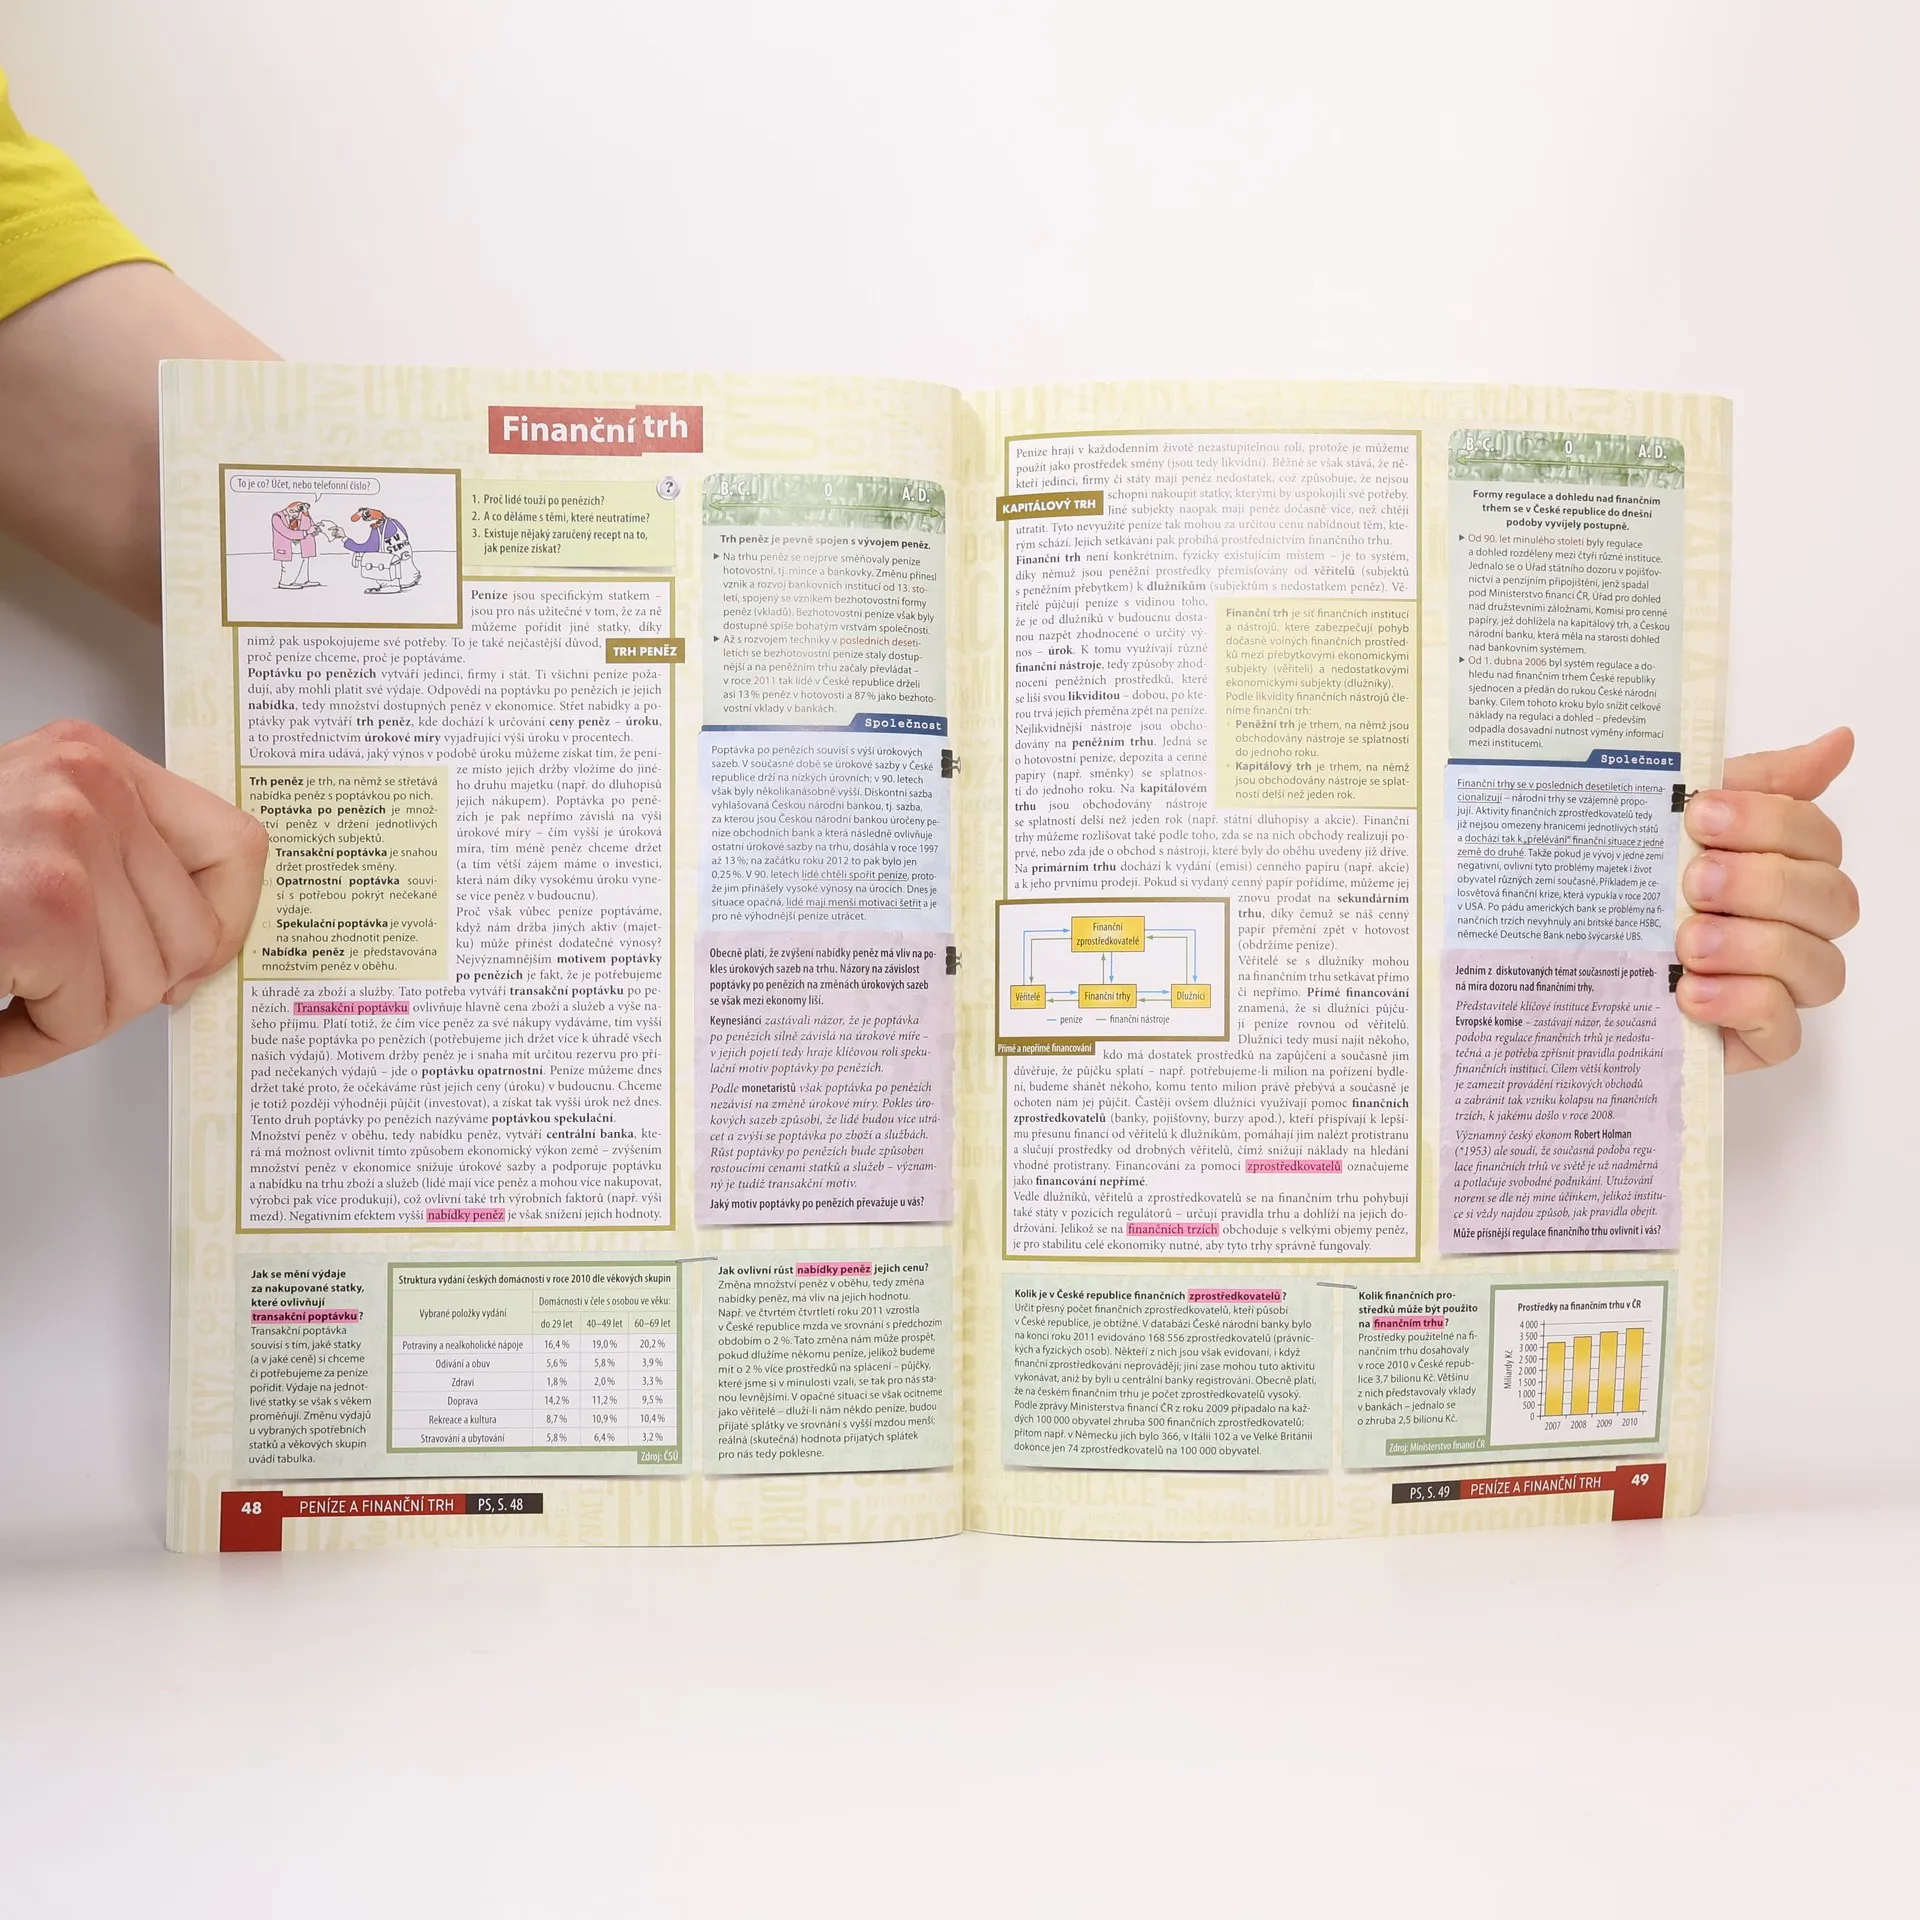 Finanční trh
To je co? Účet, nebo telefonní číslo?
1. Proč lidé touží po penězích?
2. A co děláme s těmi, které neutratíme?
3. Existuje nějaký zaručený recept na to,
jak peníze získat?
Peníze jsou specifickým statkem –
jsou pro nás užitečné v tom, že za ně
můžeme pořídit jiné statky, díky
nimž pak uspokojujeme své potřeby. To je také nejčastější důvod,
proč peníze chceme, proč je poptáváme.
TRH PENĚZ
Poptávku po penězích vytváří jedinci, firmy i stát. Ti všichni peníze poža-
dují, aby mohli platit své výdaje. Odpovědí na poptávku po penězích je jejich
nabídka, tedy množství dostupných peněz v ekonomice. Střet nabídky a po-
ptávky pak vytváří trh peněz, kde dochází k určování ceny peněz – úroku,
a to prostřednictvím úrokové míry vyjadřující výši úroku v procentech.
Úroková míra udává, jaký výnos v podobě úroku můžeme získat tím, že pení-
ze místo jejich držby vložíme do jiné-
ho druhu majetku (např. do dluhopisů
jejich nákupem). Poptávka po pené-
zích je pak nepřímo závislá na výši
úrokové míry – čím vyšší je úroková
míra, tím méně peněz chceme držet
(a tím větší zájem máme o investici,
která nám díky vysokému úroku vyne-
se více peněz v budoucnu).
Proč však vůbec peníze poptáváme,
když nám držba jiných aktiv (majet-
ku) může přinést dodatečné výnosy?
Nejvýznamnějším motivem poptávky
po penězích je fakt, že je potřebujeme
k úhradě za zboží a služby. Tato potřeba vytváří transakční poptávku po pe-
nězích. Transakční poptávku ovlivňuje hlavně cena zboží a služeb a výše na-
šeho příjmu. Platí totiž, že čím více peněz za své nákupy vydáváme, tím vyšší
bude naše poptávka po penězích (potřebujeme jich držet více k úhradě všech
našich výdajů). Motivem držby peněz je i snaha mít určitou rezervu pro pří-
pad nečekaných výdajů – jde o poptávku opatrnostní. Peníze můžeme dnes
držet také proto, že očekáváme růst jejich ceny (úroku) v budoucnu. Chceme
je totiž později výhodněji půjčit (investovat), a získat tak vyšší úrok než dnes.
Tento druh poptávky po penězích nazýváme poptávkou spekulační.
Množství peněz v oběhu, tedy nabídku peněz, vytváří centrální banka, kte-
rá má možnost ovlivnit tímto způsobem ekonomický výkon země – zvýšením
množství peněz v ekonomice snižuje úrokové sazby a podporuje poptávku
a nabídku na trhu zboží a služeb (lidé mají více peněz a mohou více nakupovat,
výrobci pak více produkují), což ovlivní také trh výrobních faktorů (např. výši
mezd). Negativním efektem vyšší nabídky peněz je však snížení jejich hodnoty.
Trh peněz je trh, na němž se střetává
nabídka peněz s poptávkou po nich.
• Poptávka po penězích je množ-
ství peněz v držení jednotlivých
ekonomických subjektů.
Transakční poptávka je snahou
držet prostředek směny.
b) Opatrnostní poptávka souvi-
sí s potřebou pokrýt nečekané
výdaje.
c) Spekulační poptávka je vyvolá-
na snahou zhodnotit peníze.
• Nabídka peněz je představována
množstvím peněz v oběhu.
B. C. 0 A. D.
Trh peněz je pevně spojen s vývojem peněz.
▶ Na trhu peněz se nejprve směňovaly peníze
hotovostní, tj. mince a bankovky. Změnu přinesl
vznik a rozvoj bankovních institucí od 13. sto-
letí, spojený se vznikem bezhotovostní formy
peněz (vkladů). Bezhotovostní peníze však byly
dostupné spíše bohatým vrstvám společnosti.
▶ Až s rozvojem techniky v posledních deseti-
letích se bezhotovostní peníze staly dostup-
nější a na peněžním trhu začaly převládat –
v roce 2011 tak lidé v České republice drželi
asi 13 % peněz v hotovosti a 87 % jako bezhoto-
vostní vklady v bankách.
Společnost
Poptávka po penězích souvisí s výší úrokových
sazeb. V současné době se úrokové sazby v České
republice drží na nízkých úrovních; v 90. letech
však byly několikanásobně vyšší. Diskontní sazba
vyhlašovaná Českou národní bankou, tj. sazba,
za kterou jsou Českou národní bankou úročeny pe-
níze obchodních bank a která následně ovlivňuje
ostatní úrokové sazby na trhu, dosáhla v roce 1997
až 13 %; na začátku roku 2012 to pak bylo jen
0,25 %. V 90. letech lidé chtěli spořit peníze, proto-
že jim přinášely vysoké výnosy na úrocích. Dnes je
situace opačná, lidé mají menší motivaci šetřit a je
pro ně výhodnější peníze utrácet.
Obecně platí, že zvýšení nabídky peněz má vliv na po-
kles úrokových sazeb na trhu. Názory na závislost
poptávky po penězích na změnách úrokových sazeb
se však mezi ekonomy liší.
Keynesiánci zastávali názor, že je poptávka
po penězích silně závislá na úrokové míře –
v jejich pojetí tedy hraje klíčovou roli speku-
lační motiv poptávky po penězích.
Podle monetaristů však poptávka po penězích
nezávisí na změně úrokové míry. Pokles úro-
kových sazeb způsobí, že lidé budou více utrá-
cet a zvýší se poptávka po zboží a službách.
Růst poptávky po penězích bude způsoben
rostoucími cenami statků a služeb – význam-
ný je tudíž transakční motiv.
Jaký motiv poptávky po penězích převažuje u vás?
Jak se mění výdaje
za nakupované statky,
které ovlivňují
transakční poptávku?
Transakční poptávka
souvisí s tím, jaké statky
(a v jaké ceně) si chceme
či potřebujeme za peníze
pořídit. Výdaje na jednot-
livé statky se však s věkem
proměňují. Změnu výdajů
u vybraných spotřebních
statků a věkových skupin
uvádí tabulka.
Struktura vydání českých domácností v roce 2010 dle věkových skupin
Vybrané položky vydání
Domácnosti v čele s osobou ve věku:
do 29 let 40–49 let 60–69 let
Potraviny a nealkoholické nápoje 16,4 % 19,0 % 20,2 %
Odívání a obuv 5,6 % 5,8 % 3,9 %
Zdraví 1,8 % 2,0 % 3,3 %
Doprava 14,2 % 11,2 % 9,5 %
Rekreace a kultura 8,7 % 10,9 % 10,4 %
Stravování a ubytování 5,8 % 6,4 % 3,2 %
Zdroj: ČSÚ
Jak ovlivní růst nabídky peněz jejich cenu?
Změna množství peněz v oběhu, tedy změna
nabídky peněz, má vliv na jejich hodnotu.
Např. ve čtvrtém čtvrtletí roku 2011 vzrostla
v České republice mzda ve srovnání s předchozím
obdobím o 2 %. Tato změna nám může prospět,
pokud dlužíme někomu peníze, jelikož budeme
mít o 2 % více prostředků na splácení – půjčky,
které jsme si v minulosti vzali, se tak pro nás sta-
nou levnějšími. V opačné situaci se však ocitneme
jako věřitelé – dluží-li nám někdo peníze, budou
přijaté splátky ve srovnání s vyšší mzdou menší;
reálná (skutečná) hodnota přijatých splátek
pro nás tedy poklesne.
48 PENÍZE A FINANČNÍ TRH PS, S. 48
Peníze hrají v každodenním životě nezastupitelnou roli, protože je můžeme
použít jako prostředek směny (jsou tedy likvidní). Běžně se však stává, že ně-
kteří jedinci, firmy či státy mají peněz nedostatek, což způsobuje, že nejsou
schopni nakoupit statky, kterými by uspokojili své potřeby.
KAPITÁLOVÝ TRH
Jiné subjekty naopak mají peněz dočasně více, než chtějí
utratit. Tyto nevyužité peníze tak mohou za určitou cenu nabídnout těm, kte-
rým schází. Jejich setkávání pak probíhá prostřednictvím finančního trhu.
Finanční trh není konkrétním, fyzicky existujícím místem – je to systém,
díky němuž jsou peněžní prostředky přemisťovány od věřitelů (subjektů
s peněžním přebytkem) k dlužníkům (subjektům s nedostatkem peněz). Vě-
řitelé půjčují peníze s vidinou toho,
že je od dlužníků v budoucnu dosta-
nou nazpět zhodnocené o určitý vý-
nos – úrok. K tomu využívají různé
finanční nástroje, tedy způsoby zhod-
nocení peněžních prostředků, které
se liší svou likviditou – dobou, po kte-
rou trvá jejich přeměna zpět na peníze.
Nejlikvidnější nástroje jsou obcho-
dovány na peněžním trhu. Jedná se
o hotovostní peníze, depozita a cenné
papíry (např. směnky) se splatnos-
tí do jednoho roku. Na kapitálovém
trhu jsou obchodovány nástroje
se splatností delší než jeden rok (např. státní dluhopisy a akcie). Finanční
trhy můžeme rozlišovat také podle toho, zda se na nich obchody realizují po-
prvé, nebo zda jde o obchod s nástroji, které byly do oběhu uvedeny již dříve.
Na primárním trhu dochází k vydání (emisi) cenného papíru (např. akcie)
a k jeho prvnímu prodeji. Pokud si vydaný cenný papír pořídíme, můžeme jej
znovu prodat na sekundárním
trhu, díky čemuž se náš cenný
papír přemění zpět v hotovost
(obdržíme peníze).
Věřitelé se s dlužníky mohou
na finančním trhu setkávat přímo
či nepřímo. Přímé financování
znamená, že si dlužníci půjču-
jí peníze rovnou od věřitelů.
Dlužníci tedy musí najít někoho,
kdo má dostatek prostředků na zapůjčení a současně jim
důvěřuje, že půjčku splatí – např. potřebujeme-li milion na pořízení bydle-
ní, budeme shánět někoho, komu tento milion právě přebývá a současně je
ochoten nám jej půjčit. Častěji ovšem dlužníci využívají pomoc finančních
zprostředkovatelů (banky, pojišťovny, burzy apod.), kteří přispívají k lepší-
mu přesunu financí od věřitelů k dlužníkům, pomáhají jim nalézt protistranu
a slučují prostředky od drobných věřitelů, čímž snižují náklady na hledání
vhodné protistrany. Financování za pomoci zprostředkovatelů označujeme
jako financování nepřímé.
Vedle dlužníků, věřitelů a zprostředkovatelů se na finančním trhu pohybují
také státy v pozicích regulátorů – určují pravidla trhu a dohlíží na jejich do-
držování. Jelikož se na finančních trzích obchoduje s velkými objemy peněz,
je pro stabilitu celé ekonomiky nutné, aby tyto trhy správně fungovaly.
Finanční trh je síť finančních institucí
a nástrojů, které zabezpečují pohyb
dočasně volných finančních prostřed-
ků mezi přebytkovými ekonomickými
subjekty (věřiteli) a nedostatkovými
ekonomickými subjekty (dlužníky).
Podle likvidity finančních nástrojů čle-
níme finanční trh:
• Peněžní trh je trhem, na němž jsou
obchodovány nástroje se splatností
do jednoho roku.
• Kapitálový trh je trhem, na němž
jsou obchodovány nástroje se splat-
ností delší než jeden rok.
Finanční
zprostředkovatelé
Věřitelé
Finanční trhy
Dlužníci
— peníze — finanční nástroje
Přímé a nepřímé financování
B. C. 0 A. D.
Formy regulace a dohledu nad finančním
trhem se v České republice do dnešní
podoby vyvíjely postupně.
▶ Od 90. let minulého století byly regulace
a dohled rozděleny mezi čtyři různé instituce.
Jednalo se o Úřad státního dozoru v pojišťov-
nictví a penzijním připojištění, jenž spadal
pod Ministerstvo financí ČR, Úřad pro dohled
nad družstevními záložnami, Komisi pro cenné
papíry, jež dohlížela na kapitálový trh, a Českou
národní banku, která měla na starosti dohled
nad bankovním systémem.
▶ Od 1. dubna 2006 byl systém regulace a do-
hledu nad finančním trhem České republiky
sjednocen a předán do rukou České národní
banky. Cílem tohoto kroku bylo snížit celkové
náklady na regulaci a dohled – především
odpadla dosavadní nutnost výměny informací
mezi institucemi.
Společnost
Finanční trhy se v posledních desetiletích interna-
cionalizují – národní trhy se vzájemně propo-
jují. Aktivity finančních zprostředkovatelů tedy
již nejsou omezeny hranicemi jednotlivých států
a dochází tak k „přelévání“ finanční situace z jedné
země do druhé. Takže pokud je vývoj v jedné zemi
negativní, ovlivní tyto problémy majetek i život
obyvatel různých zemí současně. Příkladem je ce-
losvětová finanční krize, která vypukla v roce 2007
v USA. Po pádu amerických bank se problémy na fi-
nančních trzích nevyhnuly ani britské bance HSBC,
německé Deutsche Bank nebo švýcarské UBS.
Jedním z diskutovaných témat současnosti je potřeb-
ná míra dozoru nad finančními trhy.
Představitelé klíčové instituce Evropské unie –
Evropské komise – zastávají názor, že současná
podoba regulace finančních trhů je nedosta-
tečná a je potřeba zpřísnit pravidla podnikání
finančních institucí. Cílem větší kontroly
je zamezit provádění rizikových obchodů
a zabránit tak vzniku kolapsu na finančních
trzích, k jakému došlo v roce 2008.
Významný český ekonom Robert Holman
(*1953) ale soudí, že současná podoba regu-
lace finančních trhů ve světě je už nadměrná
a potlačuje svobodné podnikání. Utužování
norem se dle něj mine účinkem, jelikož institu-
ce si vždy najdou způsob, jak pravidla obejít.
Může přísnější regulace finančního trhu ovlivnit i vás?
Kolik je v České republice finančních zprostředkovatelů?
Určit přesný počet finančních zprostředkovatelů, kteří působí
v České republice, je obtížné. V databázi České národní banky bylo
na konci roku 2011 evidováno 168 556 zprostředkovatelů (právnic-
kých a fyzických osob). Někteří z nich jsou však evidovaní, i když
finanční zprostředkování neprovádějí; jiní zase mohou tuto aktivitu
vykonávat, aniž by byli u centrální banky registrováni. Obecně platí,
že na českém finančním trhu je počet zprostředkovatelů vysoký.
Podle zprávy Ministerstva financí ČR z roku 2009 připadalo na kaž-
dých 100 000 obyvatel zhruba 500 finančních zprostředkovatelů;
přitom např. v Německu jich bylo 366, v Itálii 102 a ve Velké Británii
dokonce jen 74 zprostředkovatelů na 100 000 obyvatel.
Kolik finančních pro-
středků může být použito
na finančním trhu?
Prostředky použitelné na fi-
nančním trhu dosahovaly
v roce 2010 v České repub-
lice 3,7 bilionu Kč. Většinu
z nich představovaly vklady
v bankách – jednalo se
o zhruba 2,5 bilionu Kč.
Prostředky na finančním trhu v ČR
Miliardy Kč
4 000
3 500
3 000
2 500
2 000
1 500
1 000
500
0
2007 2008 2009 2010
Zdroj: Ministerstvo financí ČR
PS, S. 49 PENÍZE A FINANČNÍ TRH 49